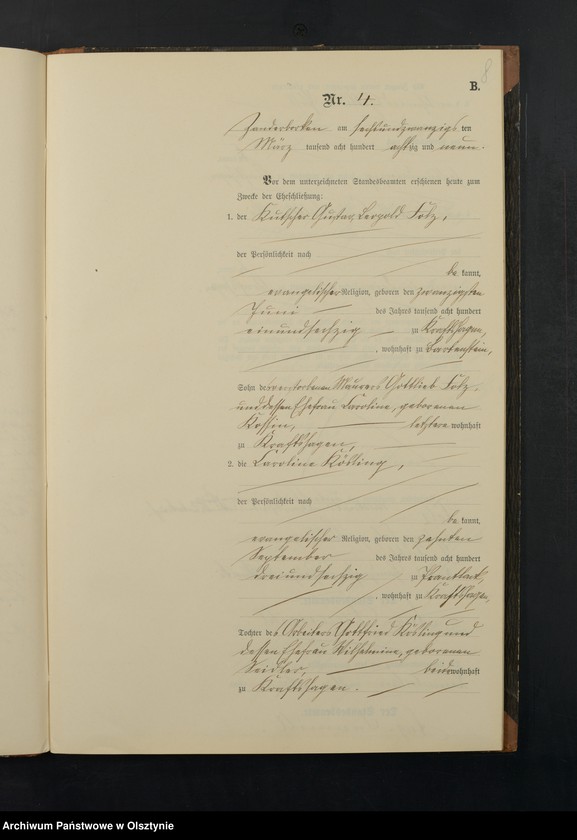 8
B.
Nr. 4.
am sechsundzwanzigsten
März tausend acht hundert achtzig und neun.
Vor dem unterzeichneten Standesbeamten erschienen heute zum
Zwecke der Eheschließung:
1. der Kutscher Gustav Leopold
der Persönlichkeit nach
be kannt,
evangelischer Religion, geboren den zwanzigsten
Juni des Jahres tausend acht hundert
einundsechszig zu Kraftshagen,
, wohnhaft zu Bartenstein,
Sohn des verstorbenen Maurers Gottlieb
und dessen Ehefrau Caroline, geborenen
letztere wohnhaft
zu Kraftshagen,
2. die Caroline Kösling,
der Persönlichkeit nach
be kannt,
evangelischer Religion, geboren den zehnten
September des Jahres tausend acht hundert
dreiundsechszig zu
, wohnhaft zu Kraftshagen,
Tochter des Arbeiters Gottfried Kösling und
dessen Ehefrau Wilhelmine, geborenen
Seidler, beide wohnhaft
zu Kraftshagen.
Archiwum Państwowe w Olsztynie